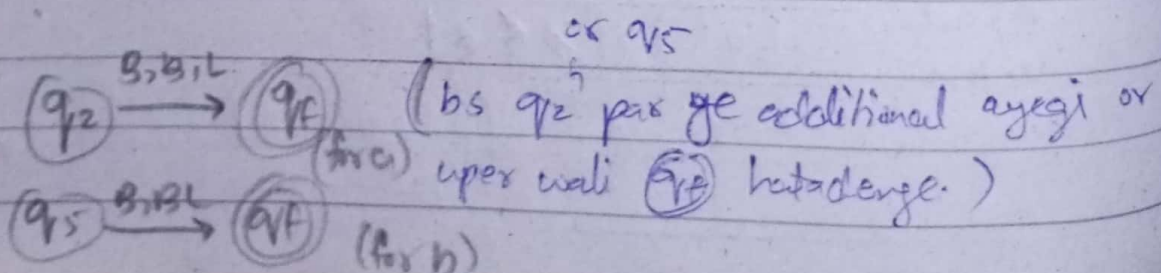 or q5
q2 B,B,L → qf (bs q2 par ye additional ayegi or
(for a) uper wali qf hatadenge.)
q5 B,B,L → qf (for b)